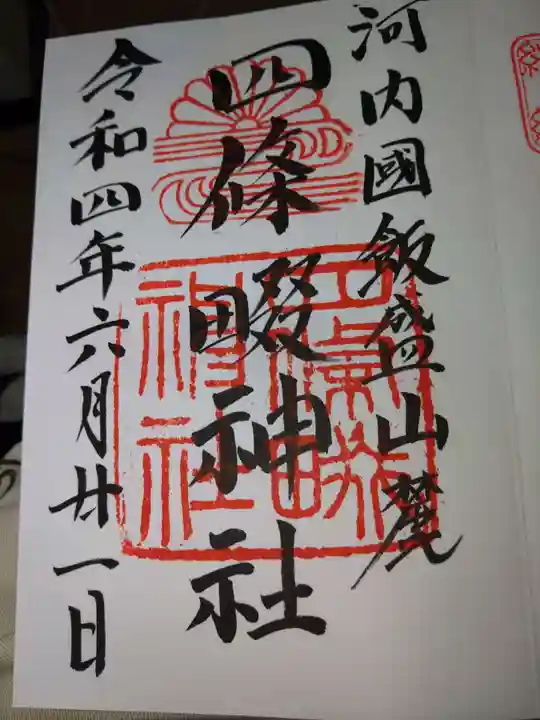 河内國飯盛山麓
四條畷神社
令和四年六月廿一日